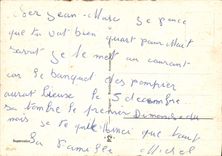 Ber Jean-Marc je pence
que tu vat bien quant pour Mait
serait je te met au courant
car le banquet des pompier
aurat lieuse le 5 decembre
sa tombe le premier Dimanche du
mois je te quitte Merci que tout
La famille Michel